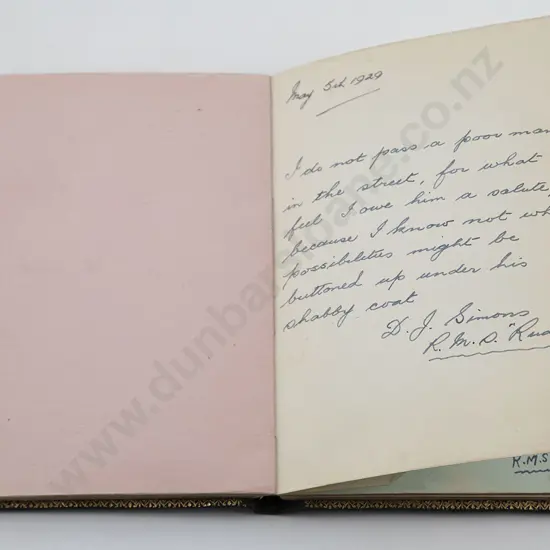 May 5th 1929
I do not pass a poor man
in the street, for what
feel I owe him a salute,
because I know not wh
possibilities might be
buttoned up under his
shabby coat
D. J. Simons
R.M.S. "Rua
R.M.S
www.dunbarsloane.co.nz